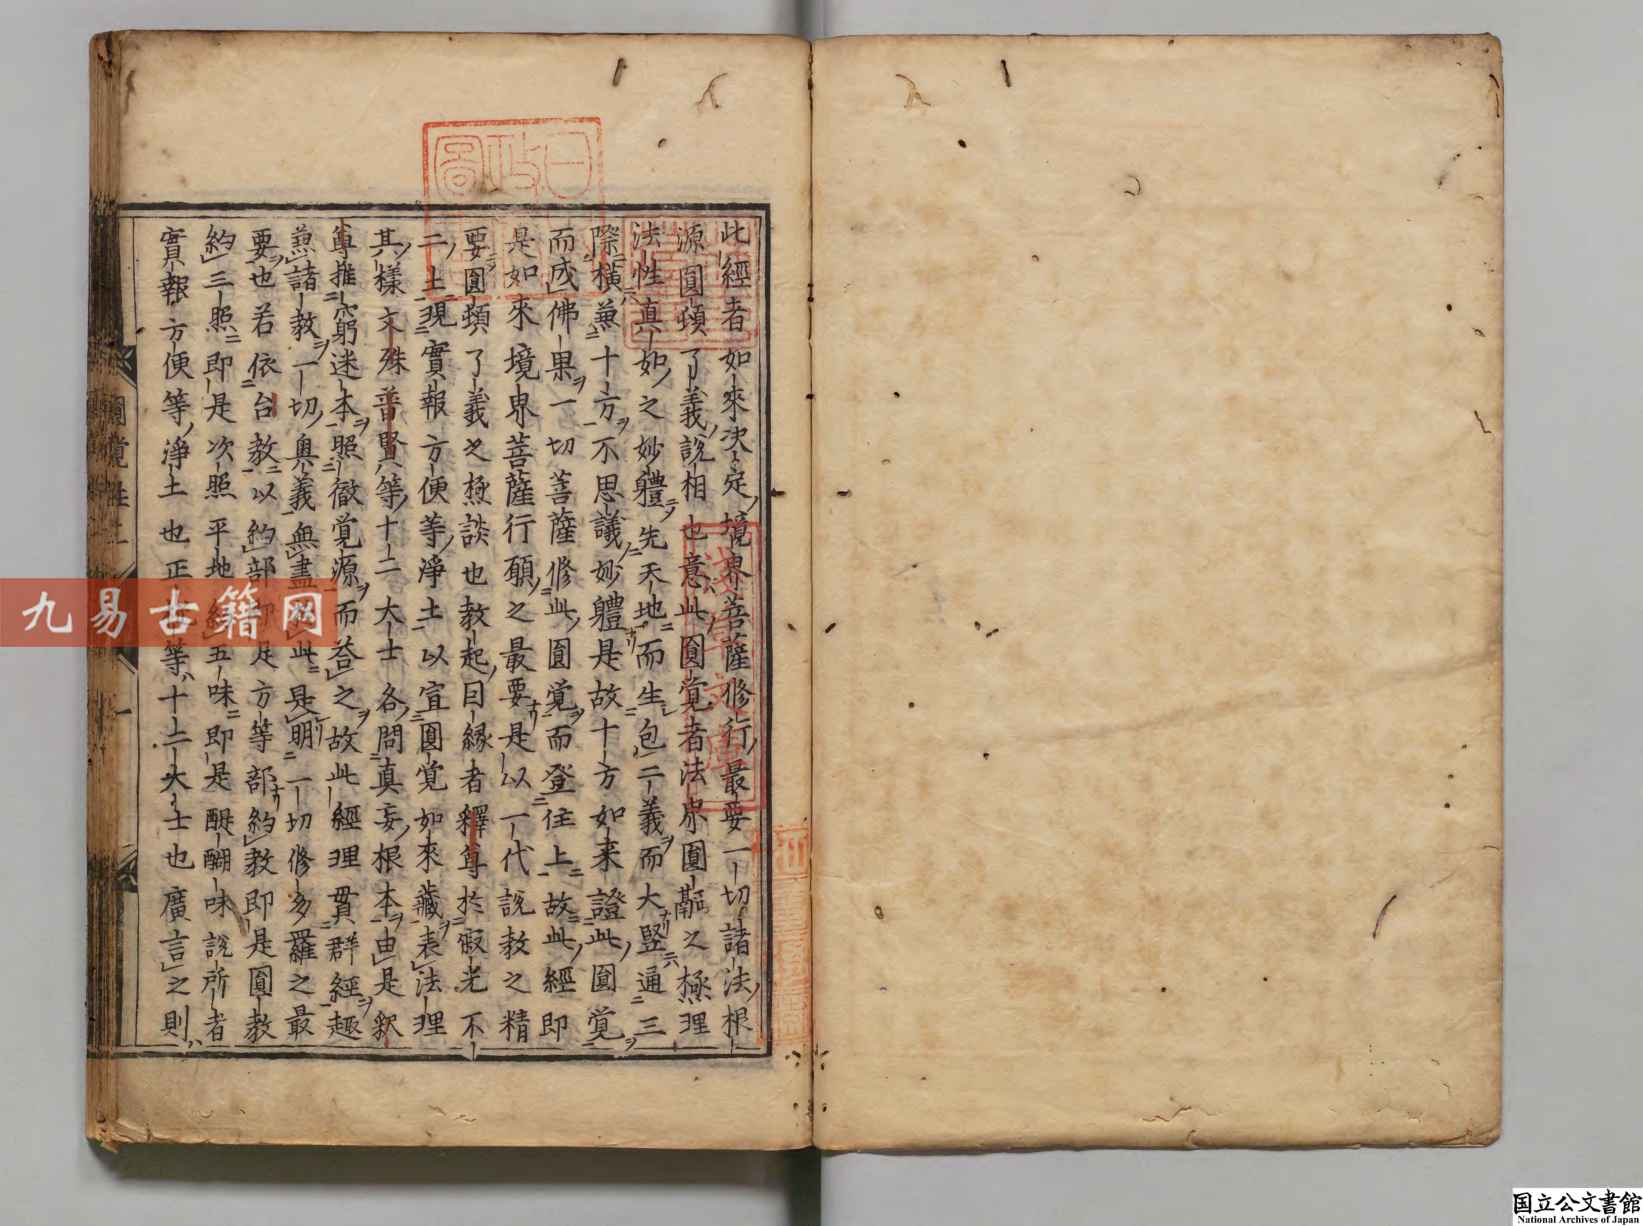 此經者如來決定境界菩薩修行最要一切諸法根
源圓頓了義說相也意此圓覺者法界圓融之極理
法性真如之妙體先天地而生包二義而大竪通三
際橫兼十方不思議妙體是故十方如来證此圓覚
而成佛果一切菩薩修此圓覚而登往上故此經即
是如來境界菩薩行願之最要是以一代說教之精
要圓頓了義之極談也教起因縁者釋尊於寂光不
二土現實報方便等淨土以宣圓覚如來藏表法理
其樣文殊普賢等十二大士各問真妄根本由是釈
尊推窮迷本照徹覚源而荅之故此經理貫群經趣
兼諸教一切奥義無盡此是明一切修多羅之最
要也若依台教以約部即是方等部約教即是圓教
約三照即是次照平地五味即是醍醐味說所者
實報方便等淨土也正等十二大士也廣言之則
圓覚
九易古籍网
国立公文書館
National Archives of Japan